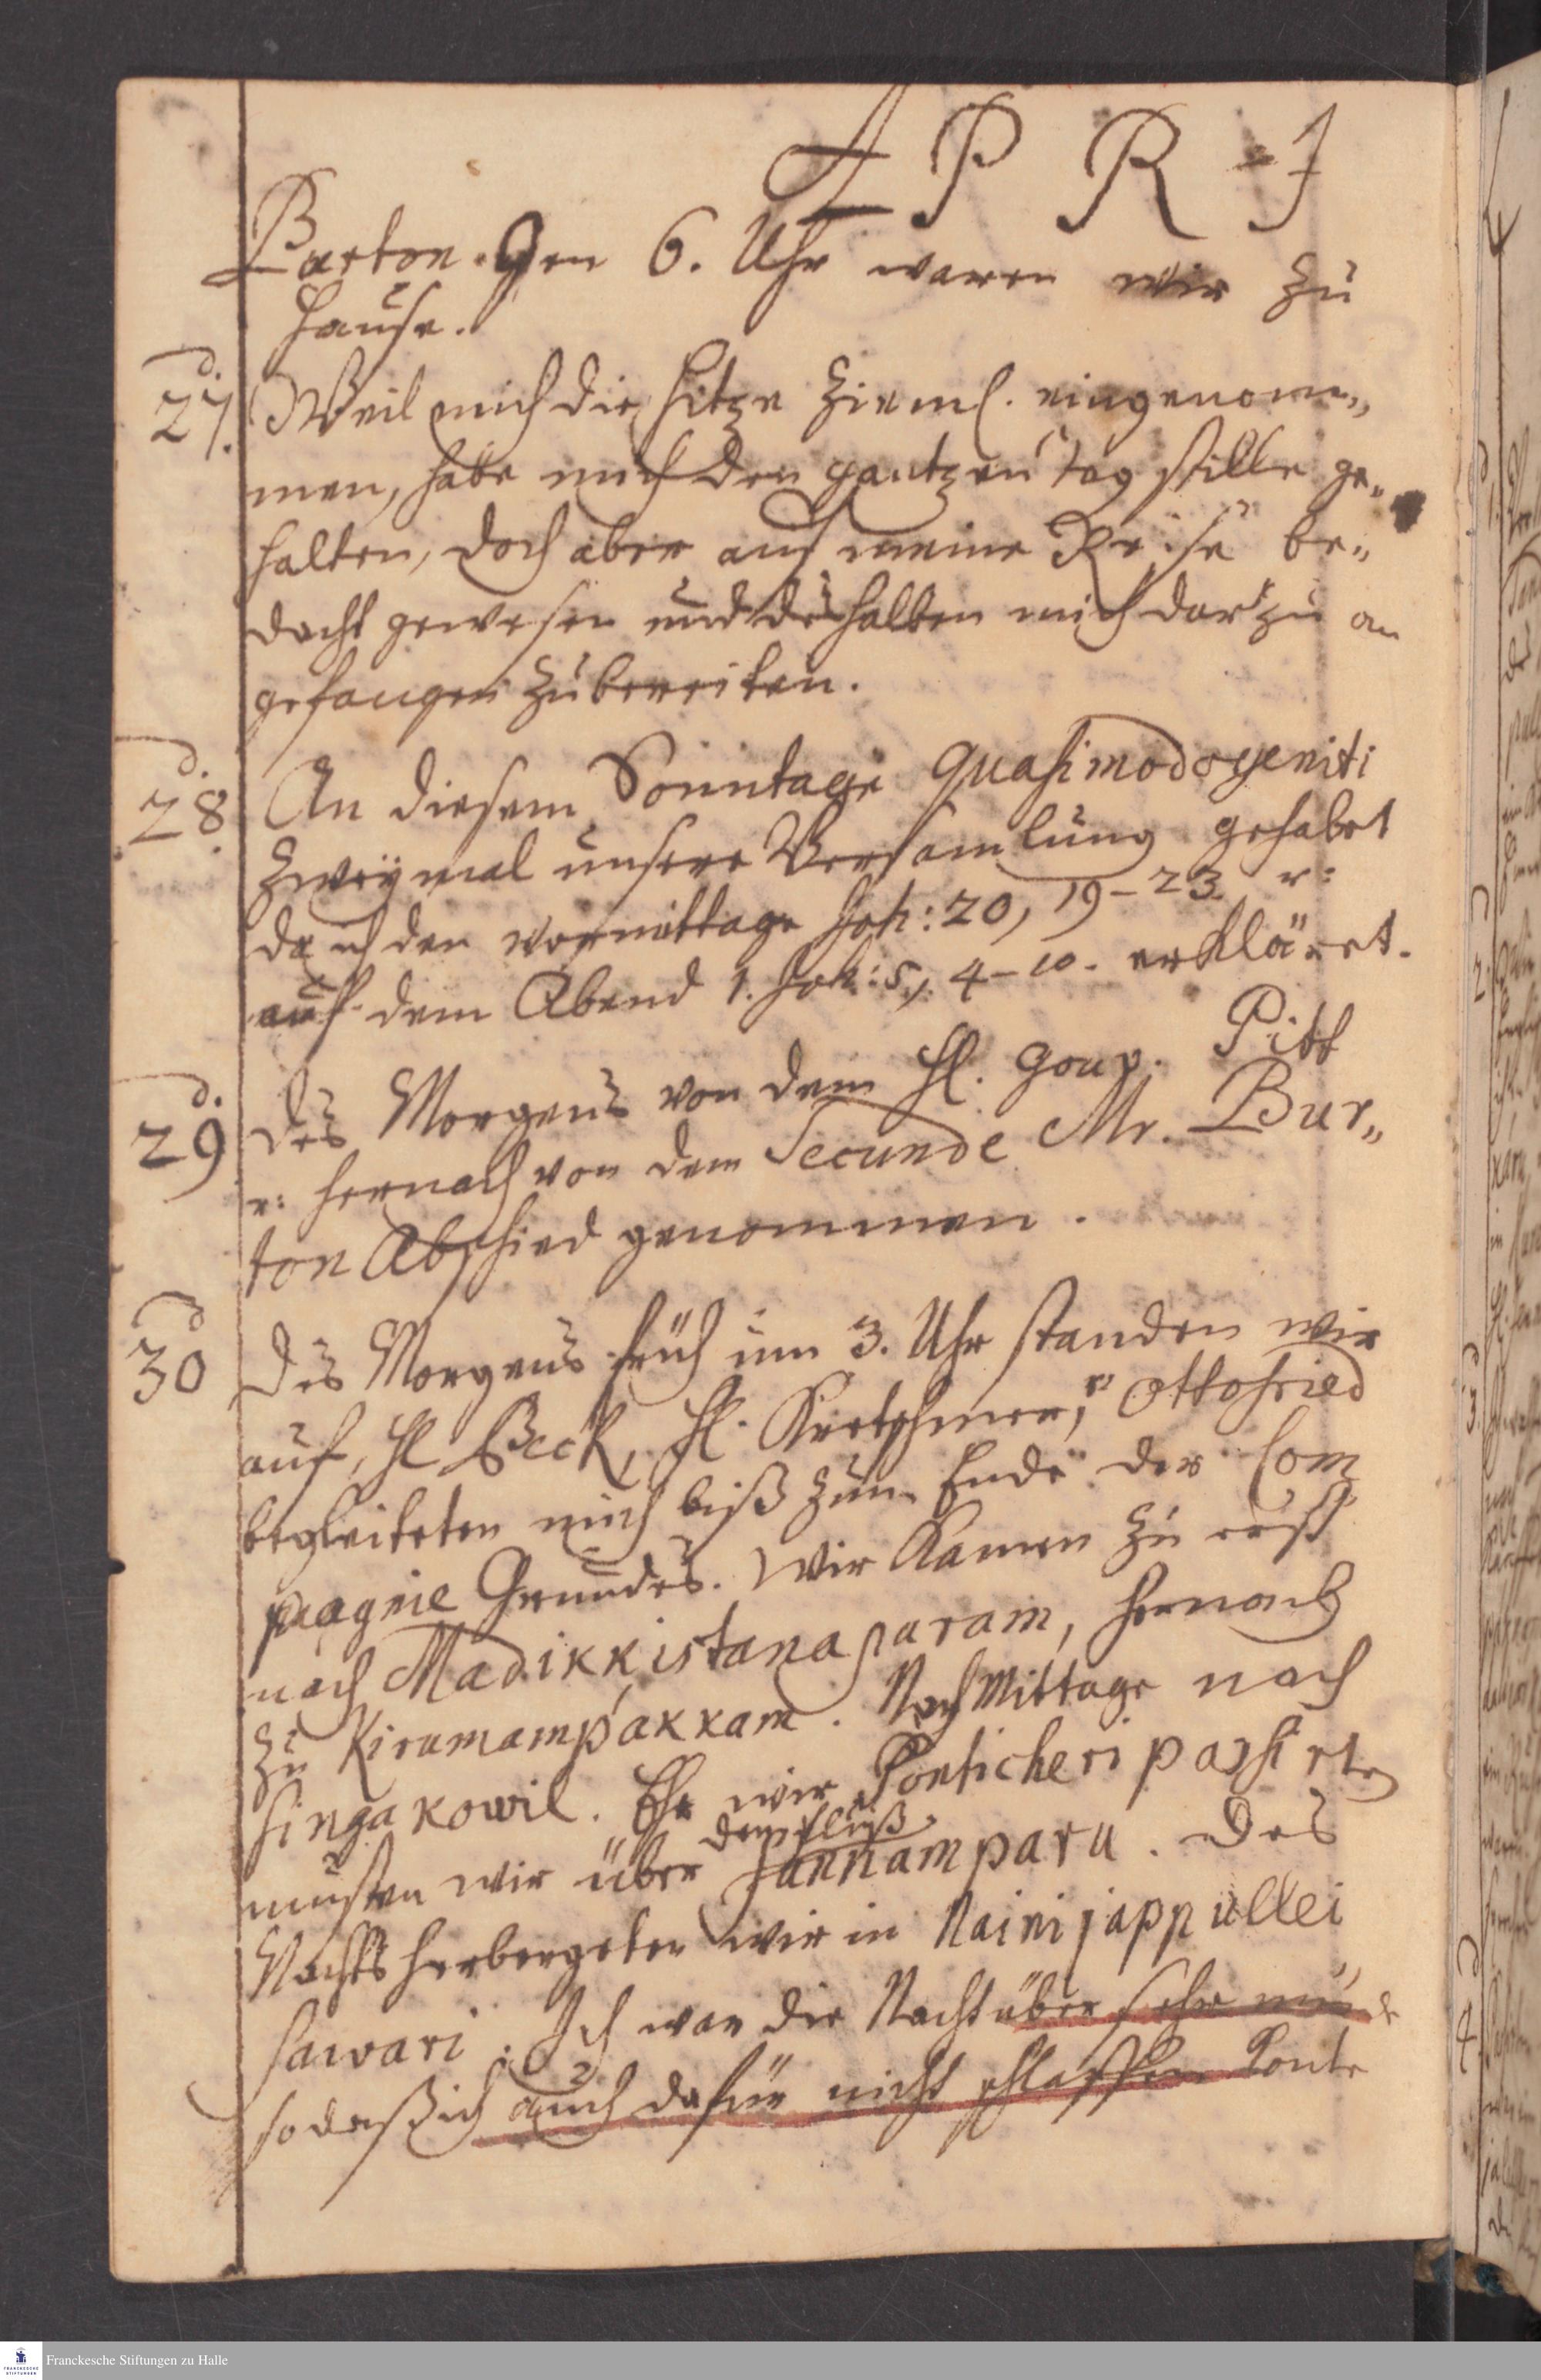 A P R - I
Barton. Gen 6. Uhr waren wir zu
Hause.
d.
27.
Weil mich die Hitze zieml. eingenom„
men, habe mich den gantzen tag stille ge„
halten, doch aber auf meine Reise be„
dacht gewesen und deshalben mich darzu an
gefangen zubereiten.
d.
28.
An diesem Sonntage Quasimodogeniti
zweymal unsere Versamlung gehabt
den vormittage Joh: 20, 19-23 u:
auf dem Abend 1. Joh: 5, 4-10. erkläret.
d.
29
des Morgens von dem H. Gouv. Pitt
u: hernach von dem Secunde Mr. Bur„
ton Abschied genommen.
d
30
Des Morgens früh um 3. Uhr standen wir
auf, H Beck, H. Kretschmer, u: Ottofried
begleiteten mich biß zum Ende der Com
pagnie Grundes. Wir kamen zu erst
nach Madikkistanaparam, hernach
zu Kirumampákkam. Nach Mittage nach
Singakowil. Ehe wir Ponticheri passirten
dem fluß
musten wir über Sannamparu. Des
Nachts herbergeten wir in Nainijappullei
sawari. Ich war die Nacht über sehr müde
so daß ich auch dafür nicht schlaffen konte
Franckesche Stiftungen zu Halle